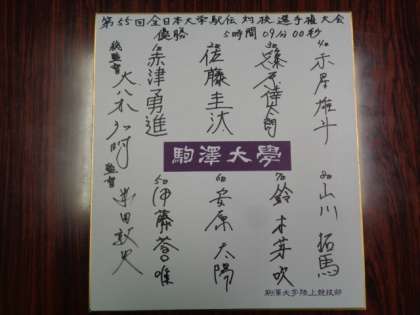 第55回全日本大学駅伝対校選手権大会
優勝 5時間09分00秒
総監督 大八木弘明
赤津勇進
佐藤圭汰
篠原倖太朗
赤星雄斗
駒澤大學
監督 藤田敦史
伊藤蒼唯
安原太陽
鈴木芽吹
山川拓馬
駒澤大学陸上競技部